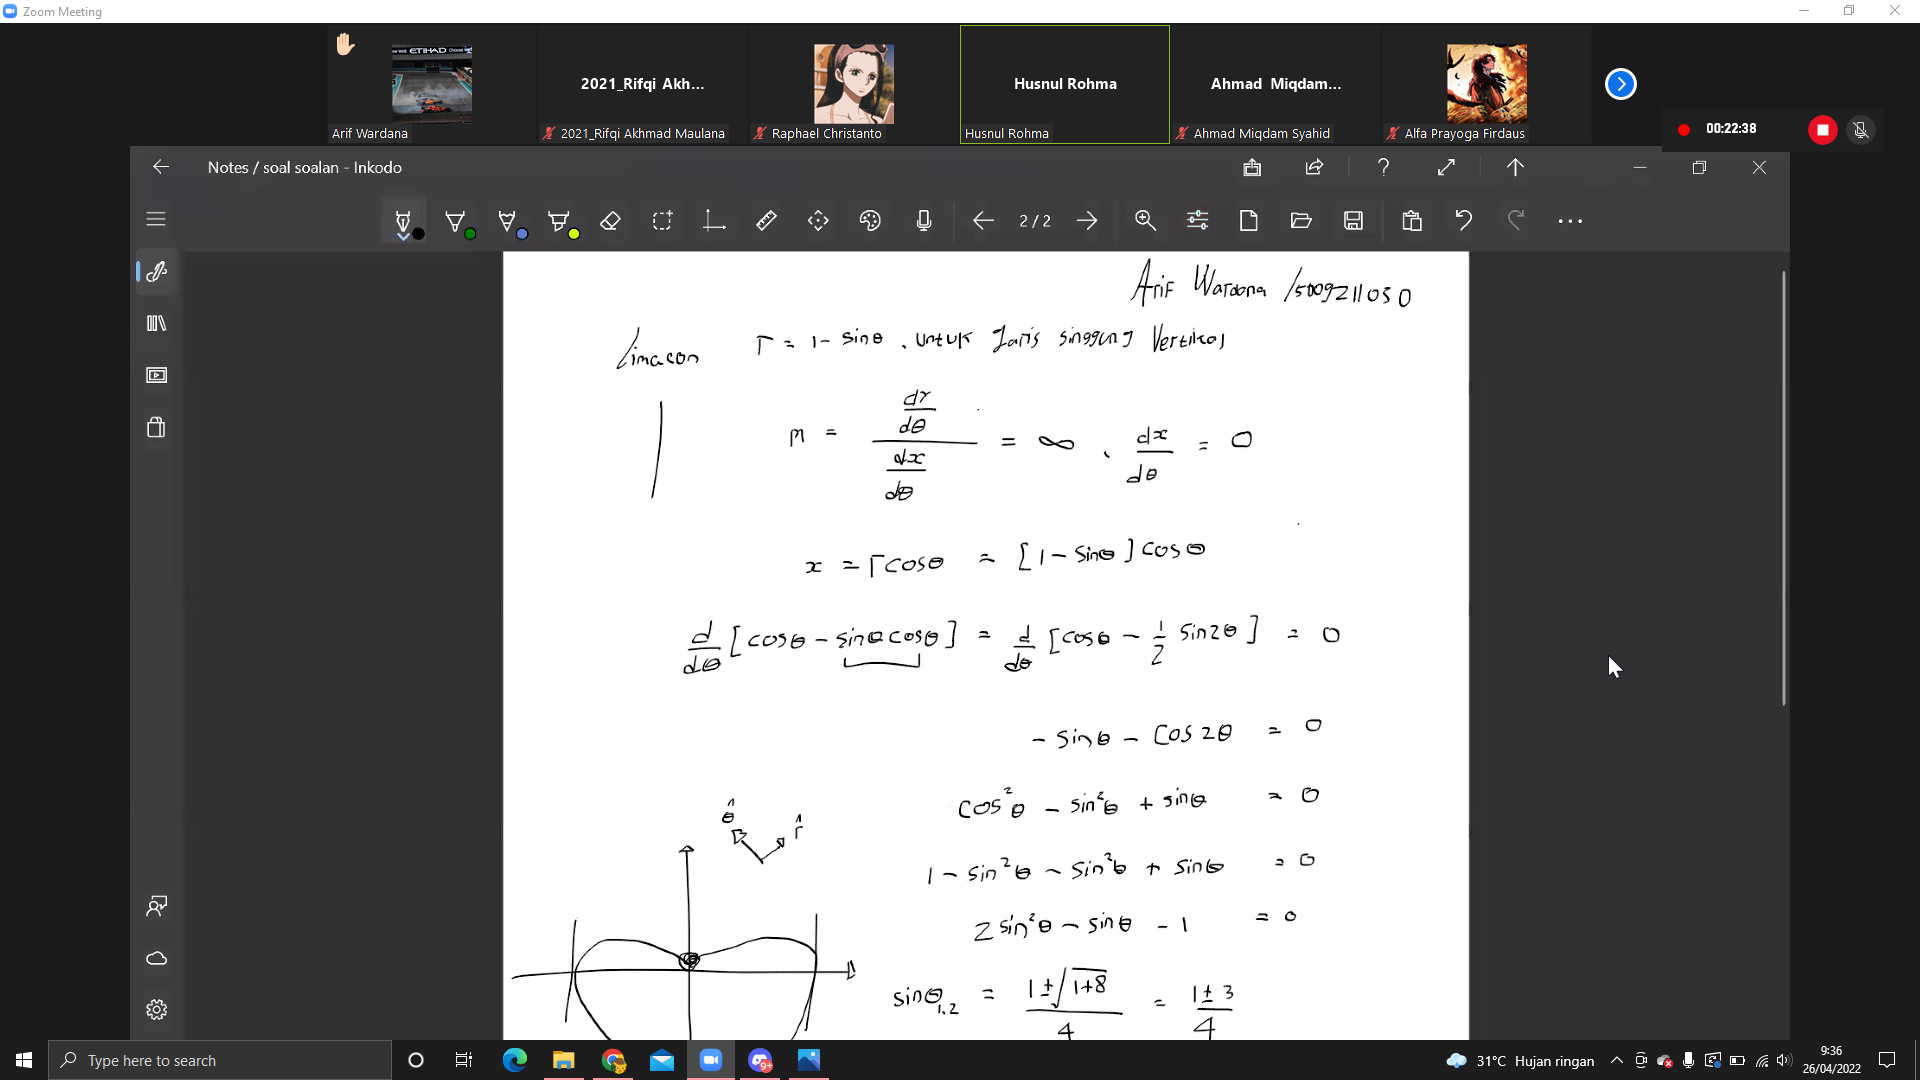 Zoom Meeting
ETIHAD
Arif Wardana
2021_Rifqi Akh...
2021_Rifqi Akhmad Maulana
Raphael Christanto
Husnul Rohma
Husnul Rohma
Ahmad Miqdam...
Ahmad Miqdam Syahid
Alfa Prayoga Firdaus
00:22:38
Notes / soal soalan - Inkodo
2 / 2
Arif Wardana /5009211050
Limacon r = 1 - sinθ . untuk Garis singgung Vertikal
m = (dr/dθ)/(dx/dθ) = ∞ , dx/dθ = 0
x = r cosθ = [1 - sinθ] cosθ
d/dθ [cosθ - sinθ cosθ] = d/dθ [cosθ - 1/2 sin2θ] = 0
- sinθ - cos2θ = 0
cos²θ - sin²θ + sinθ = 0
1 - sin²θ - sin²θ + sinθ = 0
2 sin²θ - sinθ - 1 = 0
sinθ₁,₂ = (1 ± √(1+8))/4 = (1 ± 3)/4
θ̂
r̂
Type here to search
9+
31°C Hujan ringan
9:36
26/04/2022